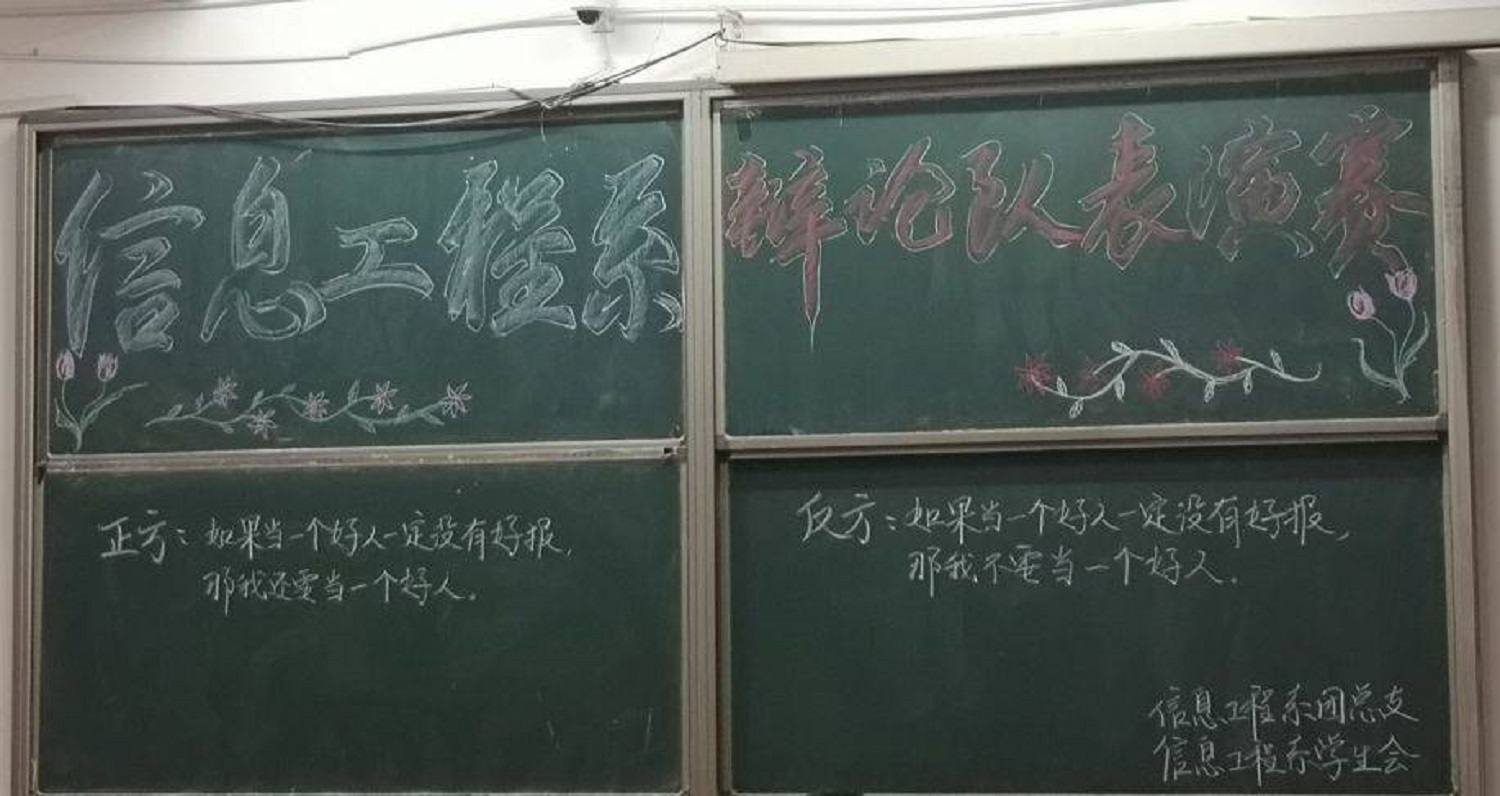 信息工程系
辩论队表演赛
正方：如果当一个好人一定没有好报，
那我还要当一个好人.
反方：如果当一个好人一定没有好报，
那我不要当一个好人.
信息工程系团总支
信息工程系学生会